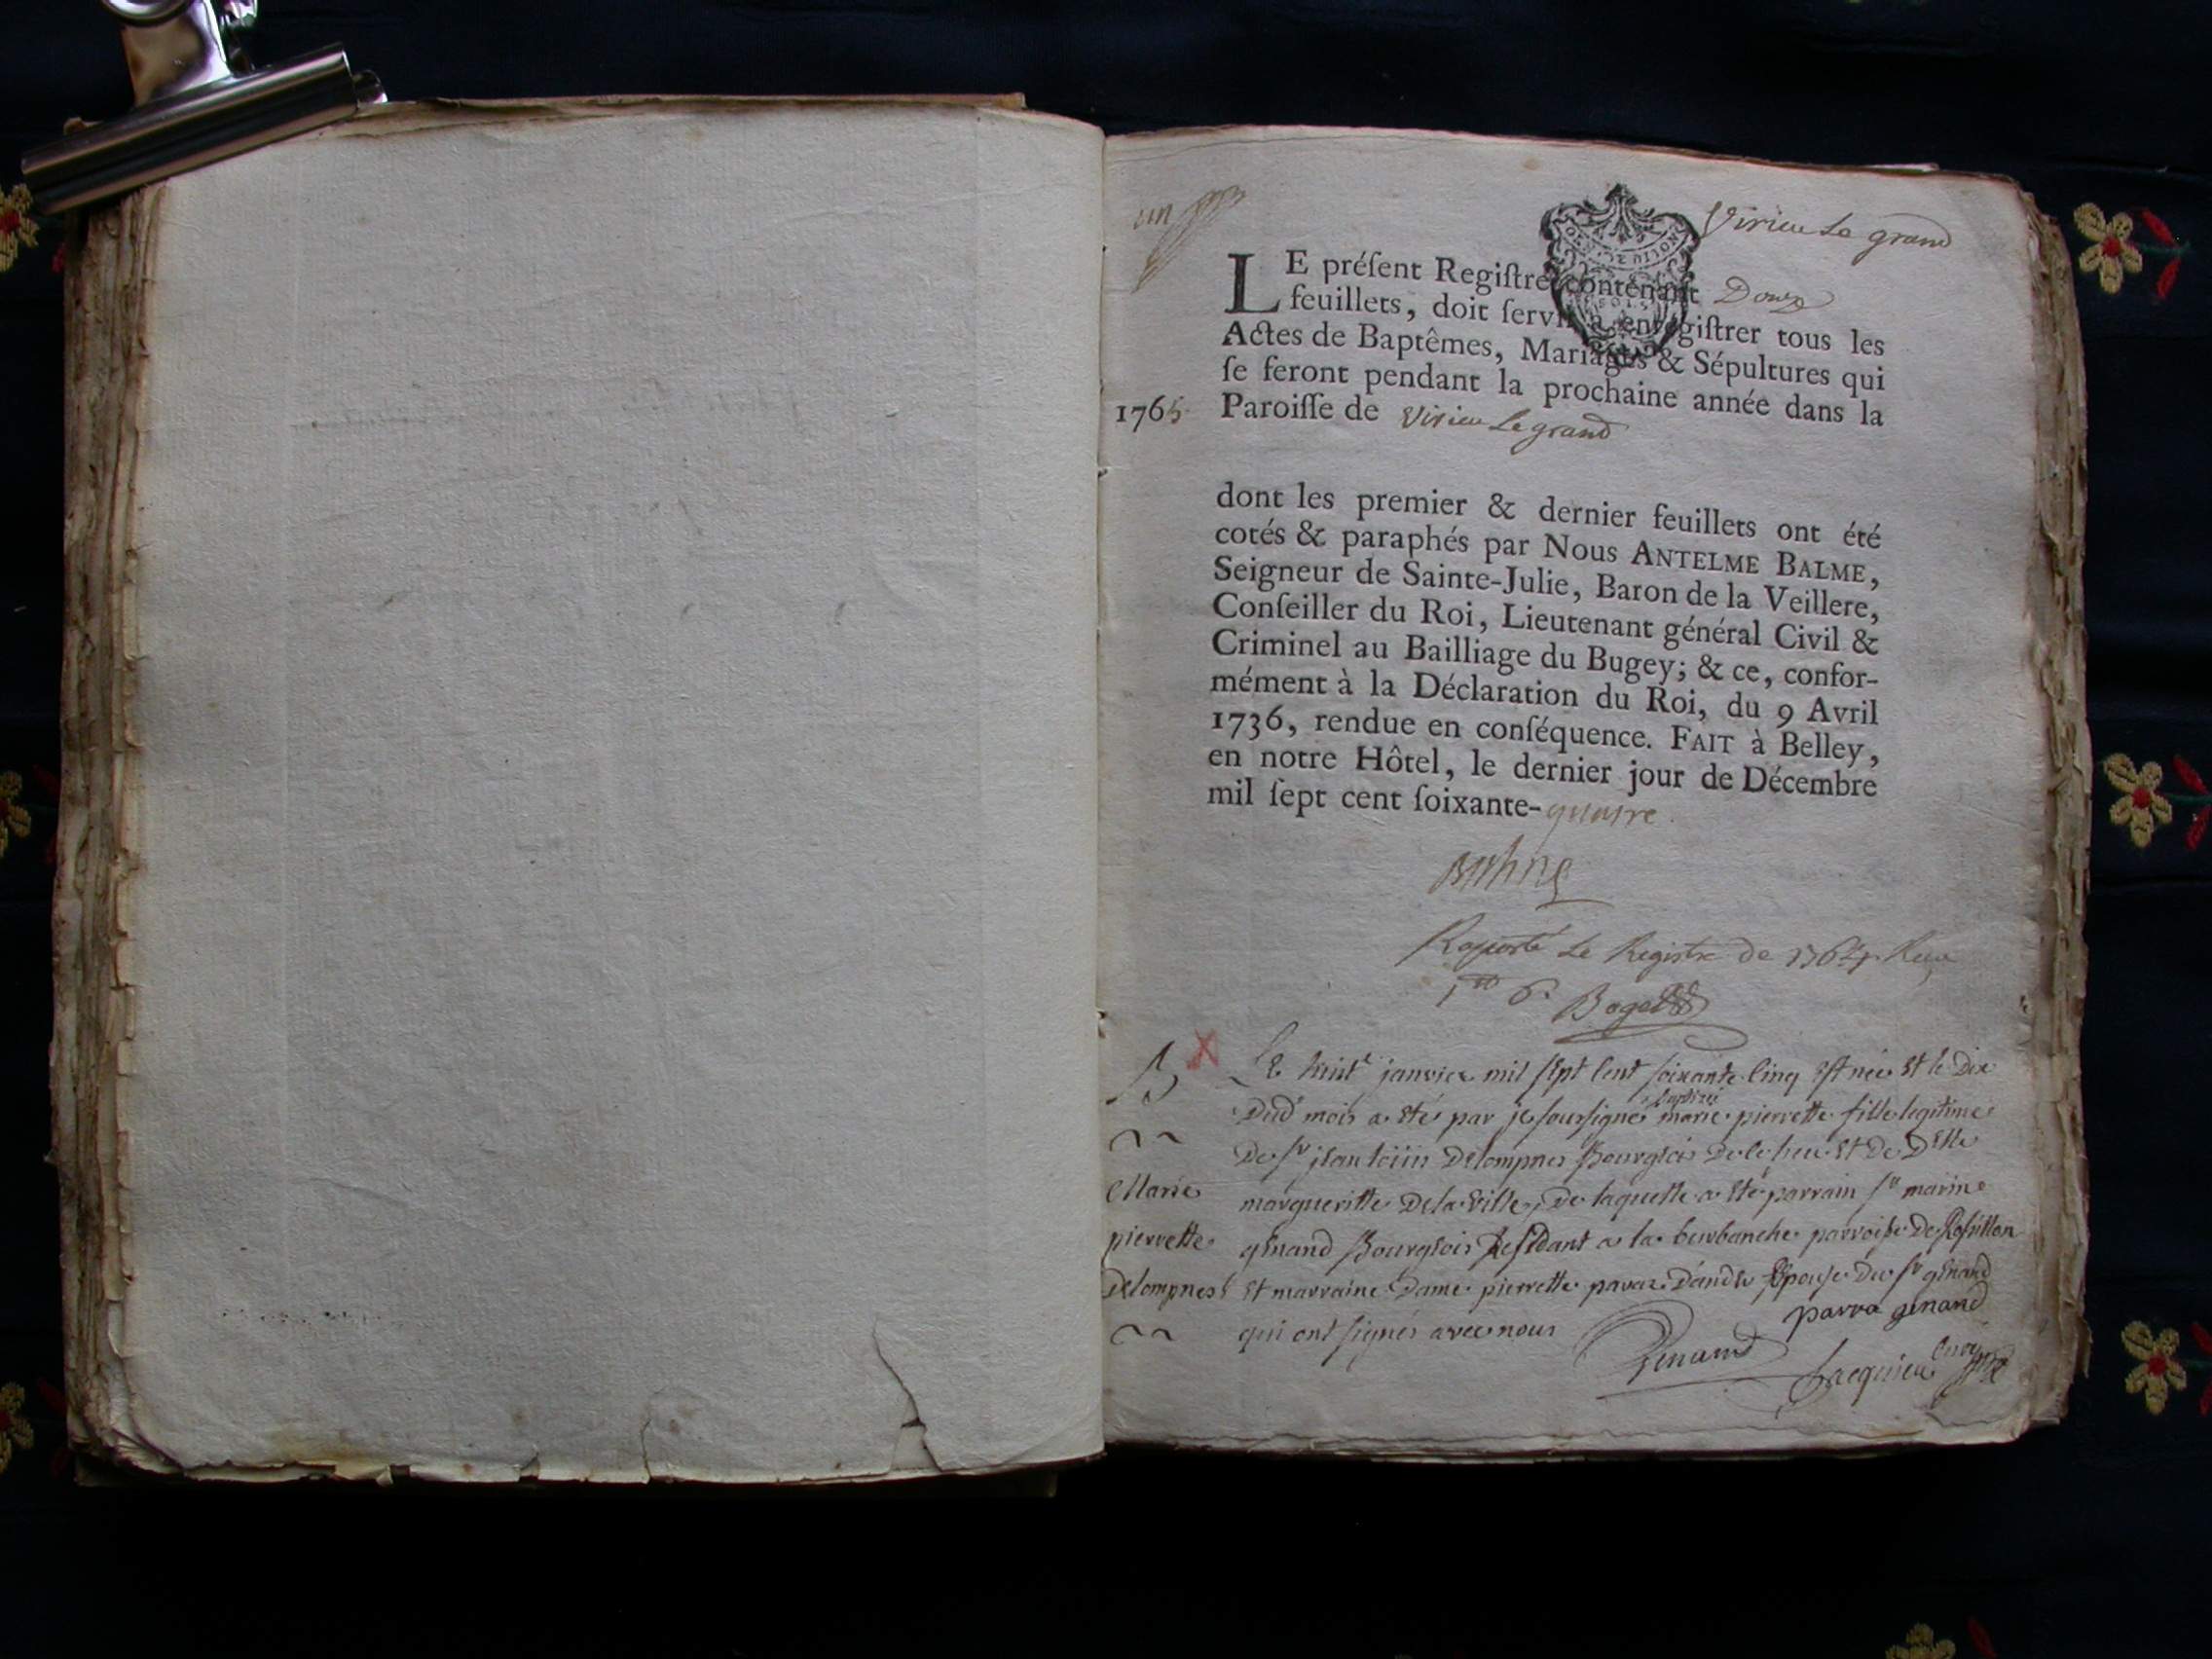 un
Virieu Le grand
LE préſent Regiſtre contenant Douze
feuillets, doit ſervir à enregiſtrer tous les
Actes de Baptêmes, Mariages & Sépultures qui
ſe feront pendant la prochaine année dans la
1765 Paroiſſe de Virieu Le grand
dont les premier & dernier feuillets ont été
cotés & paraphés par Nous ANTELME BALME,
Seigneur de Sainte-Julie, Baron de la Veillere,
Conſeiller du Roi, Lieutenant général Civil &
Criminel au Bailliage du Bugey; & ce, confor-
mément à la Déclaration du Roi, du 9 Avril
1736, rendue en conſéquence. FAIT à Belley,
en notre Hôtel, le dernier jour de Décembre
mil ſept cent ſoixante-quatre.
Balme
Raporté Le Registre de 1764
Le huit janvier mil sept cent soixante cinq est née et le Dix
baptisée
Dud mois a eté par je soussigné marie pierrette fille legitime
De Sr jean loüis Delompnes Bourgeois De ce lieu et De Delle
Marie
margueritte Delaville, De laquelle a eté parrain Sr marin
pierrette
genand Bourgeois Residant a la burbanche parroisse De Rossillon
Delompnes
et marraine Dame pierrette pavaz Dandu Epouse Du Sr genand
qui ont signés avec nous
parra genand
Genand
Jacquieu Curé